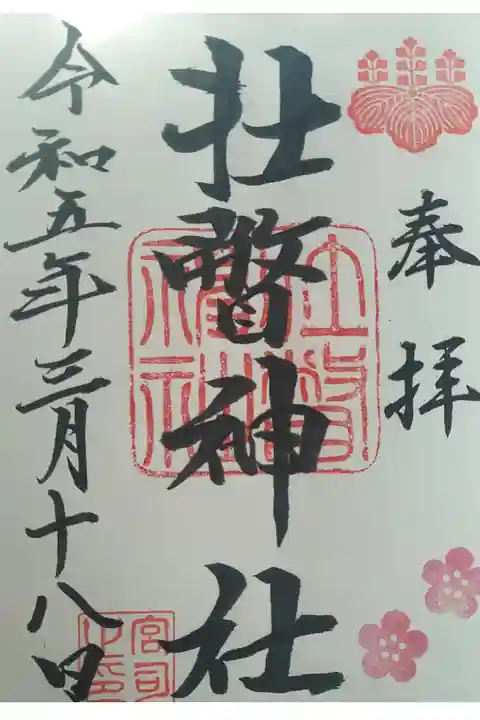 奉拝
壮瞥神社
令和五年三月十八日
宮司之印